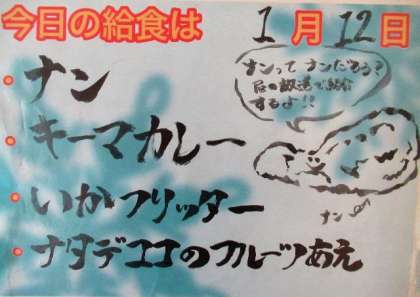 今日の給食は 1月12日
・ナン
・キーマカレー
・いかフリッター
・ナタデココのフルーツあえ
ナンってナンだろう?
昼の放送で紹介
するよ!!
ナン